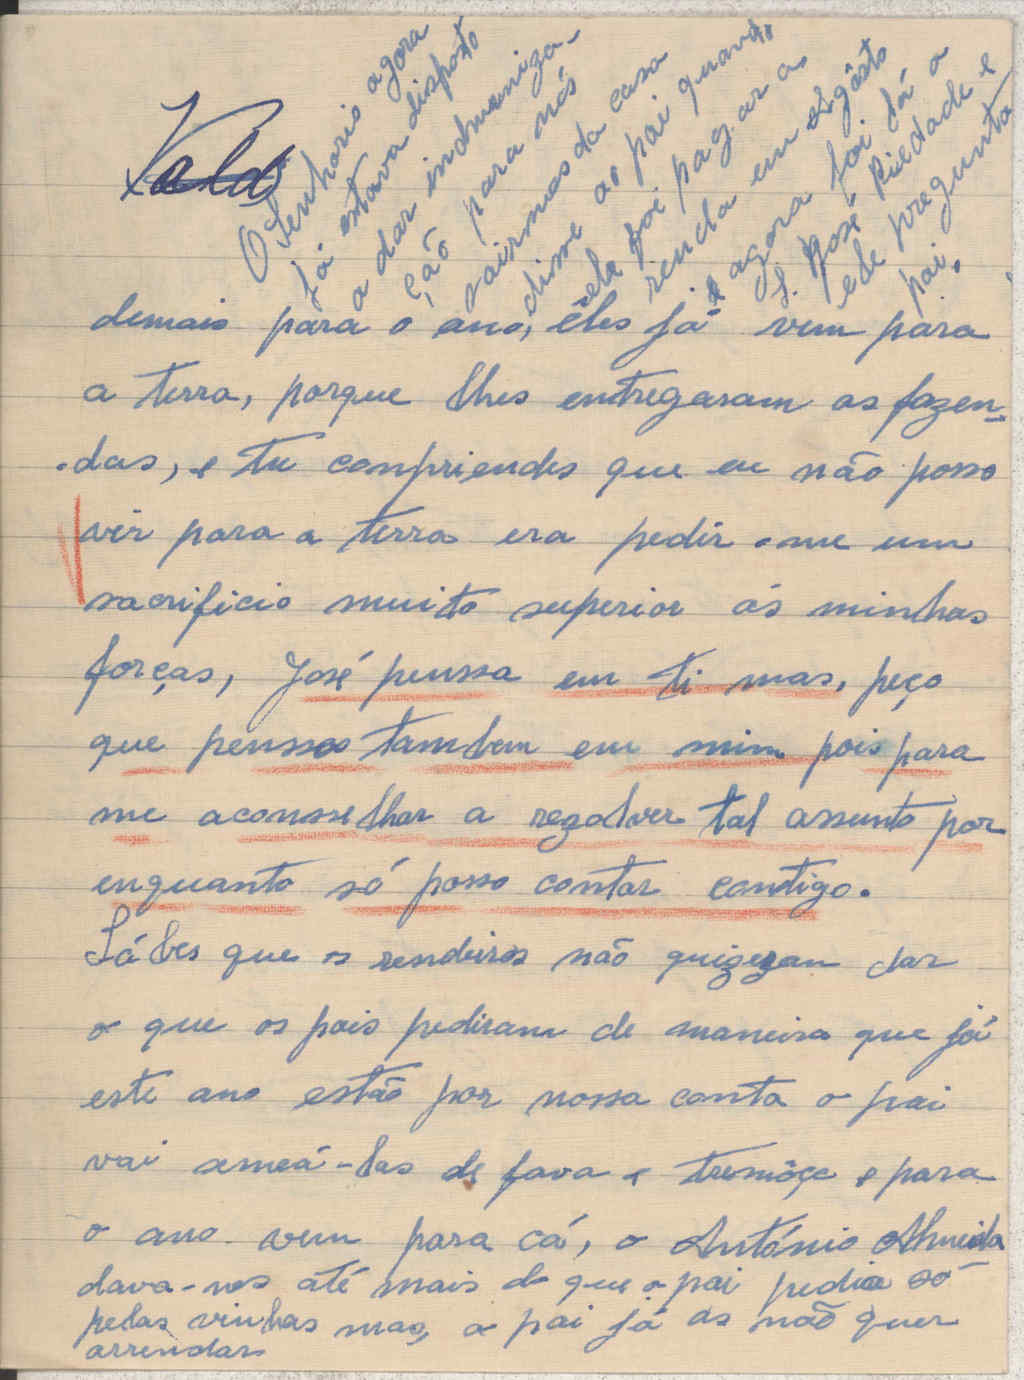 O Senhorio agora
já estava disposto
a dar indmeniza-
ção para nós
sairmos da casa
disse ao pai quando
ele foi pagar a
renda em Agôsto
e agora foi lá a
S. José Piedade e
ele pregunta
pai.
Vald
demais para o ano, êles já vem para
a terra, porque lhes entregaram as fazen-
das, e tu compriendes que eu não posso
vir para a terra era pedir-me um
sacrificio muito superior ás minhas
forças, José penssa em ti mas, peço
que penssas tambem em mim pois para
me aconsselhar a rezolver tal assunto por
enquanto só posso contar contigo.
Sábes que os rendeiros não quizeran dar
o que os pais pediram de maneira que já
este ano estão por nossa conta o pai
vai semeá-las de fava e tremôçe e para
o ano vem para cá, o António Almeida
dava-nos até mais do que o pai pedia só
pelas vinhas mas, o pai já as não quer
arrendar